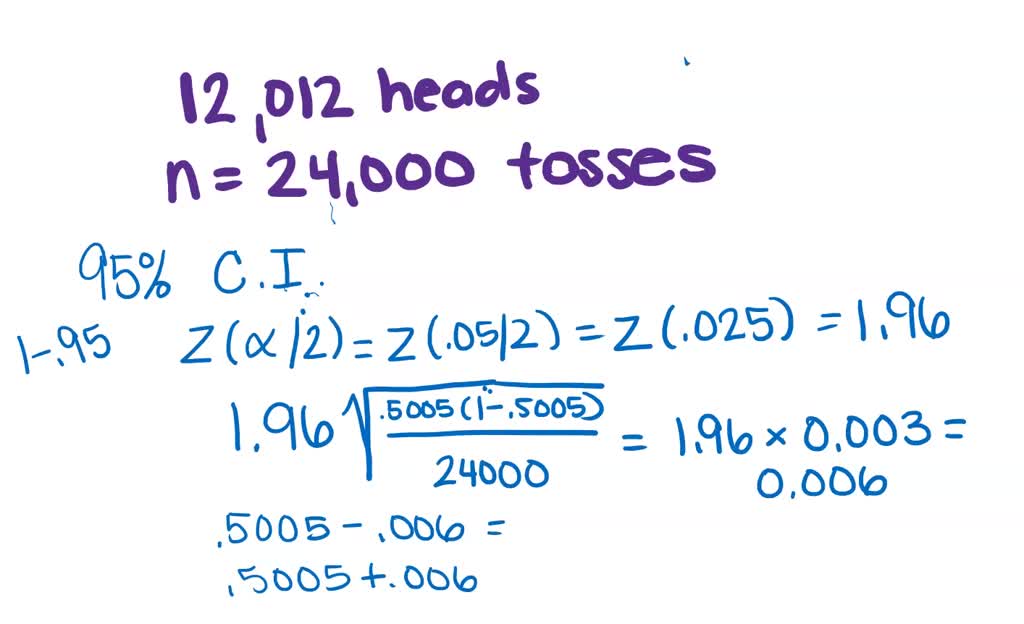 12,012 heads
n = 24,000 tosses
95% C.I.
1-.95 Z(α/2) = Z(.05/2) = Z(.025) = 1.96
1.96 √(.5005(1-.5005)/24000) = 1.96 × 0.003 =
0.006
.5005 - .006 =
.5005 + .006